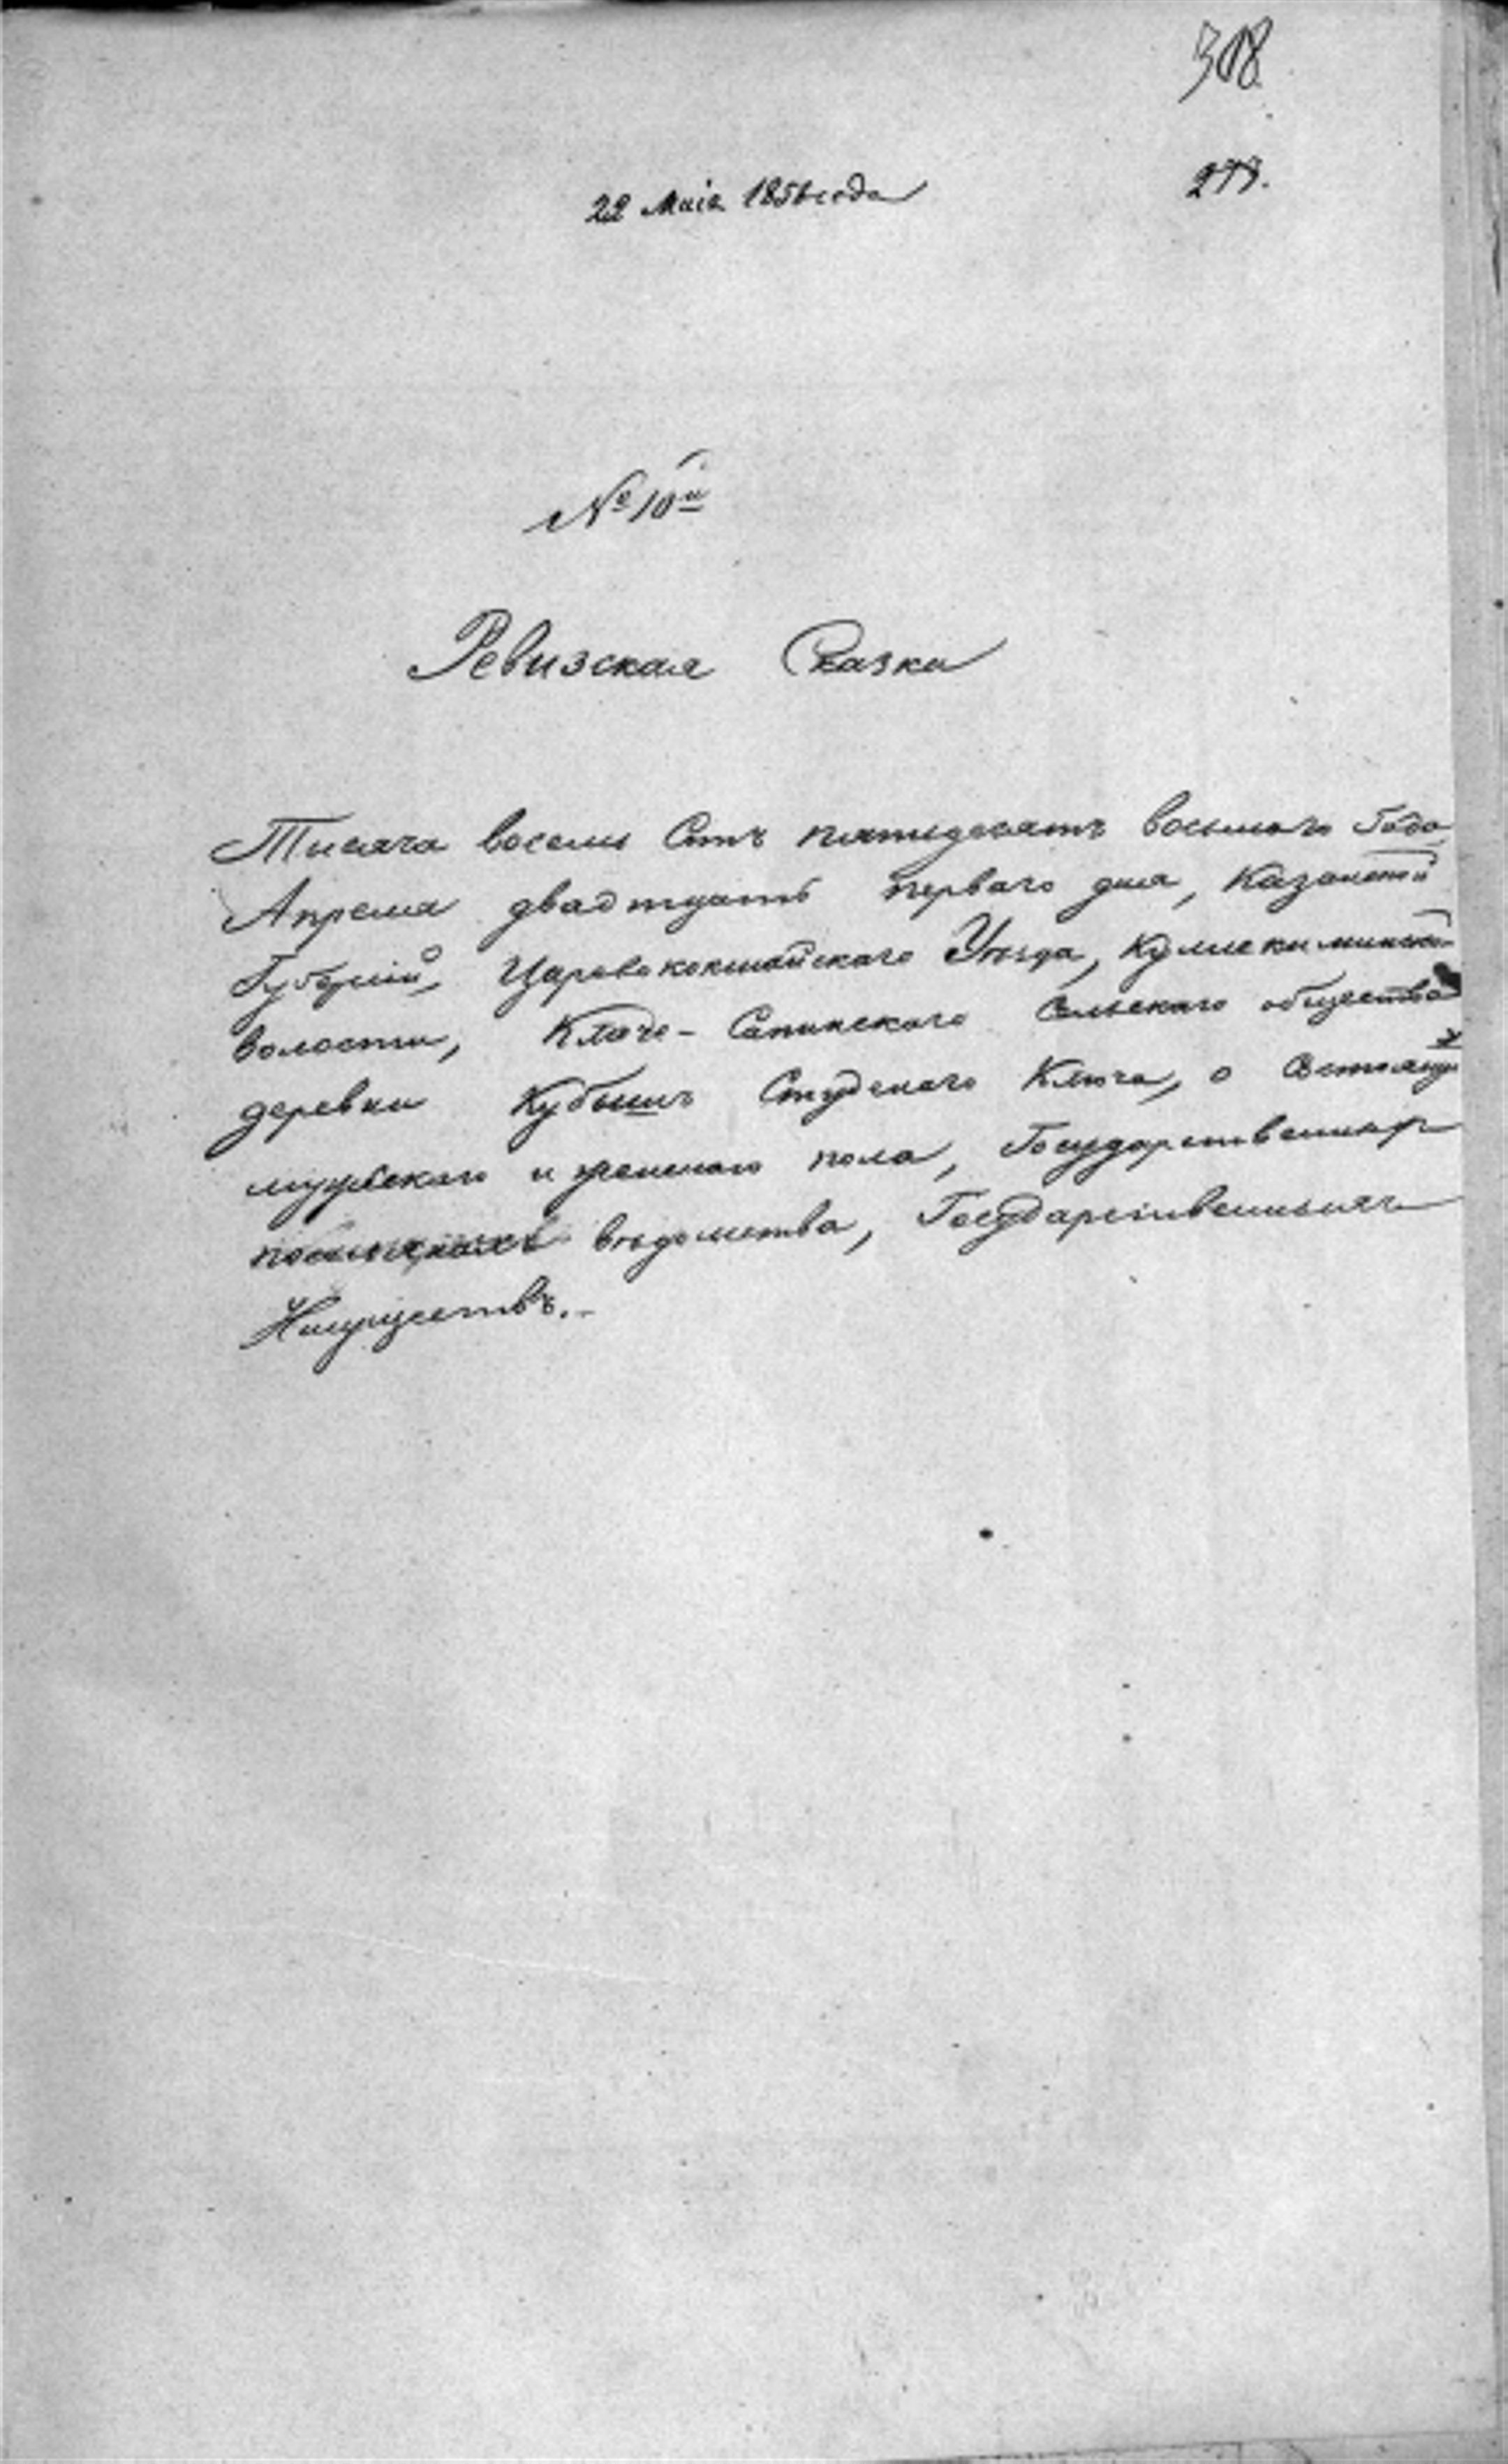 308
277.
22 Маія 1858 года
№ 10й
Ревизская Сказка
Тисяча восемь Сотъ пятидесятъ восьмого Года
Апреля двадтцать перваго дня, Казанской
Губерніи, Царевококшайскаго Уѣзда,
волости, Ключе-Сапинскаго Сельскаго общества
деревни Кубышъ Студенаго Ключа, о Состоящих
мужескаго и женскаго пола, Государственных
вѣдомства, Государственныхъ
Имуществъ.-